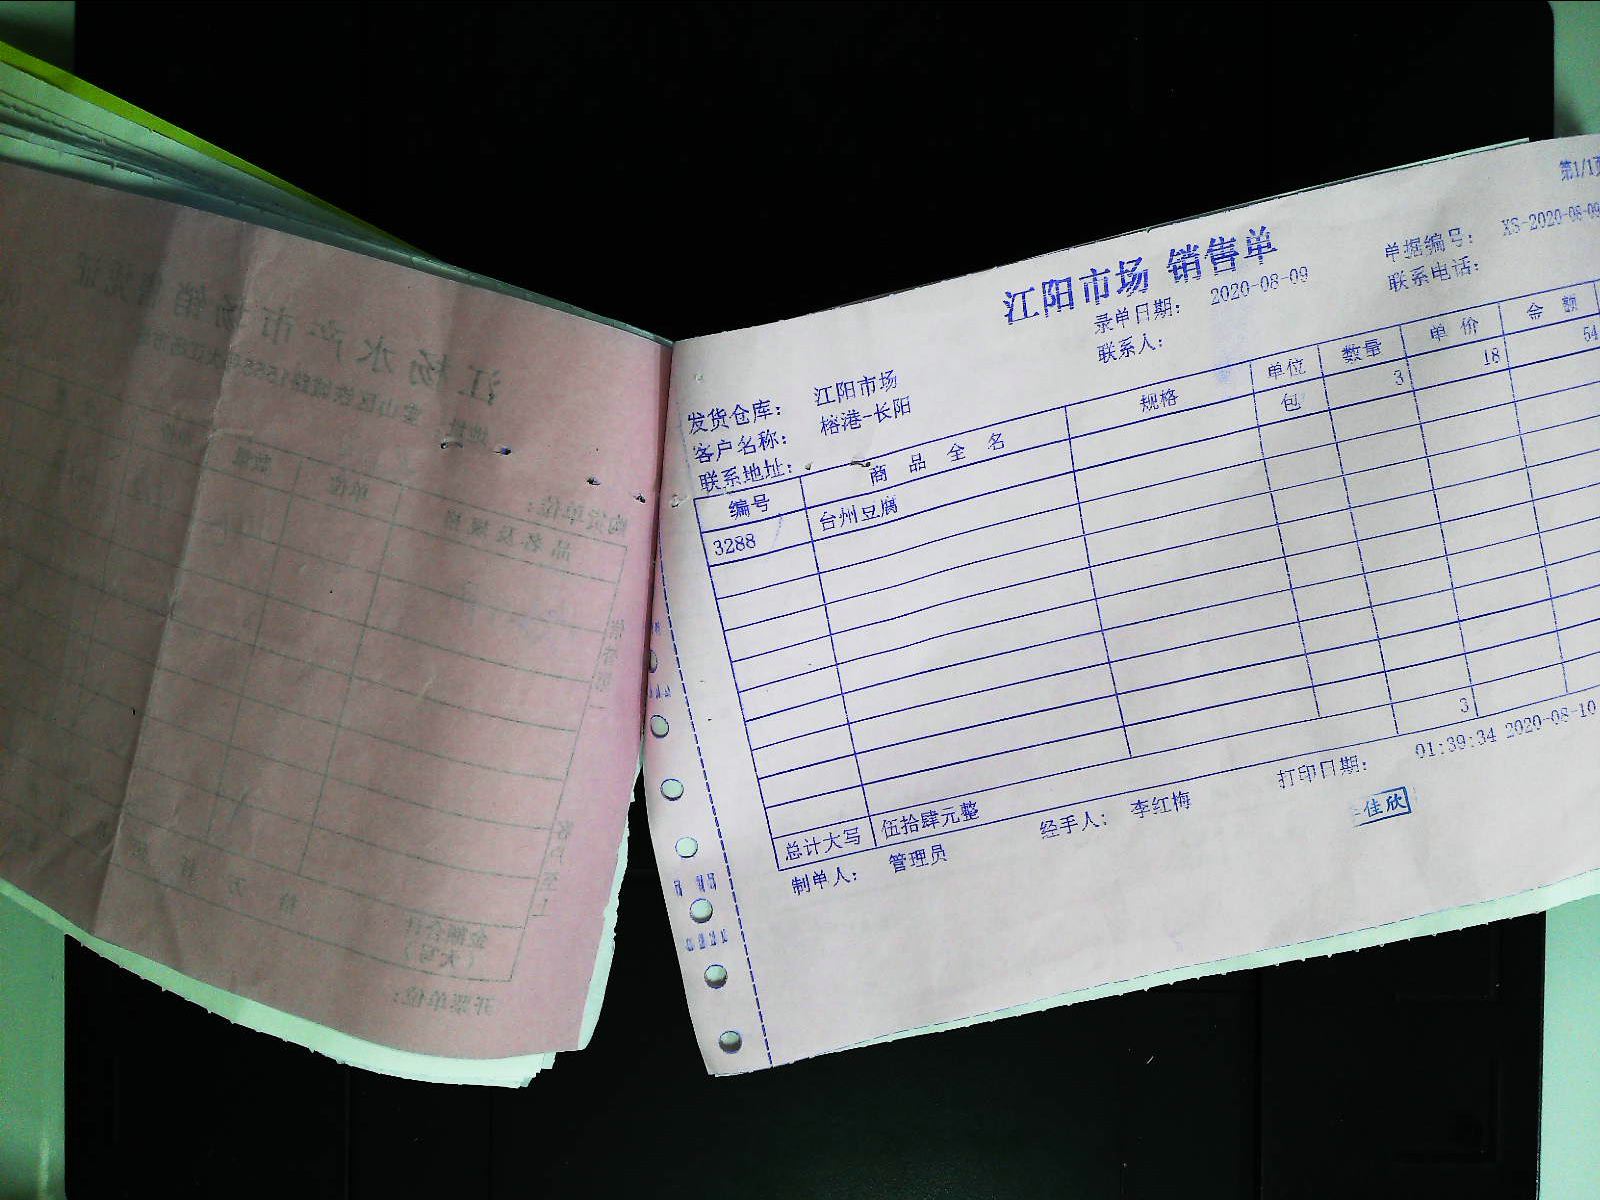 第1/1页
江阳市场 销售单
单据编号： XS-2020-08-09
录单日期： 2020-08-09
联系电话：
联系人：
发货仓库： 江阳市场
客户名称： 榕港-长阳
联系地址：
编号 商 品 全 名 规格 单位 数量 单 价 金 额
3288 台州豆腐 包 3 18 54
3
总计大写 伍拾肆元整
制单人： 管理员 经手人： 李红梅 打印日期： 01:39:34 2020-08-10
佳欣
江杨水产市场销售
购货单位：
品名及规格 单位 数量
金额合计
（大写）
开票单位：